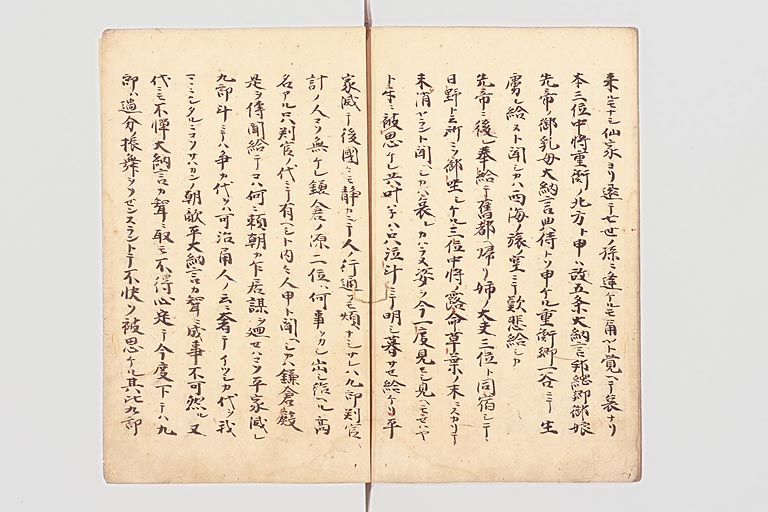 来レモナシ仙家ヨリ返テ七世ノ孫ニ逢ケルモ角ヤト覚ヘテ哀ナリ
本三位中将重衡ノ北方ト申ハ故五条大納言邦綱卿御娘
先帝ノ御乳母大納言典侍トソ申ケル重衡卿一谷ニテ生
虜レ給ヌト聞シカハ西海ノ旅ノ空ニテ歎悲給シカ
先帝ニ後レ奉給テ舊都ヘ帰リ姉ノ大夫三位ト同宿シテ
日野ト云所ニソ御坐シケル三位中将ノ露命草葉ノ末ニスカリテ
未消ヤラシト聞シカハ哀レカハラヌ姿ヲ今一度見モシ見ヘモセハヤ
ト被思ケレ共叶ネハ只泣斗ニテ明シ暮カセ給ケリ平
家滅テ後國々モ静カニテ人ノ行通ヲモ煩ナシサレハ九郎判官
計ノ人コソ無ケレ鎌倉ノ源二位ハ何事ヲカシ出シ給ヘル高
名アル只判官ノ代ニテ有ヘシト内々人申ト聞ヘシカハ鎌倉殿
是ヲ傳聞給テコハ何ニ頼朝カ乍居謀ヲ廻セハコソ平家滅レ
九郎斗ニテハ争カ代ヲハ可治角人ノ云ニ奢テイツシカ代ヲ我
マヽニシタルニコソ朝敵平大納言カ聟ニ成事不可然ル又
代ニモ不憚大納言カ聟ニ取モ不得心定テ今度下テハ九
郎ハ過分ノ振舞ヲソセンスラントテ不快ソ被思ケル其比九郎